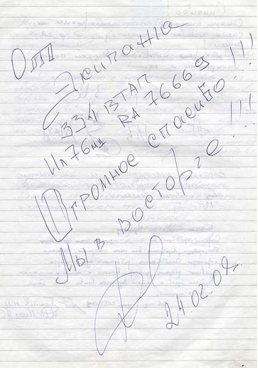 От
Экипажа
334 ВТАП
Ил76мд RA 76669
Огромное спасибо!!!
Мы в восторге!!!
24.02.09г.